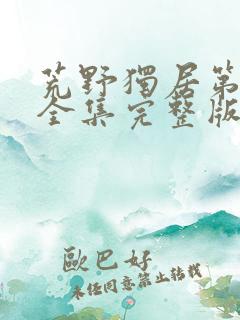 荒野獨居第
全集完整版
歐巴好
未經同意禁止轉載